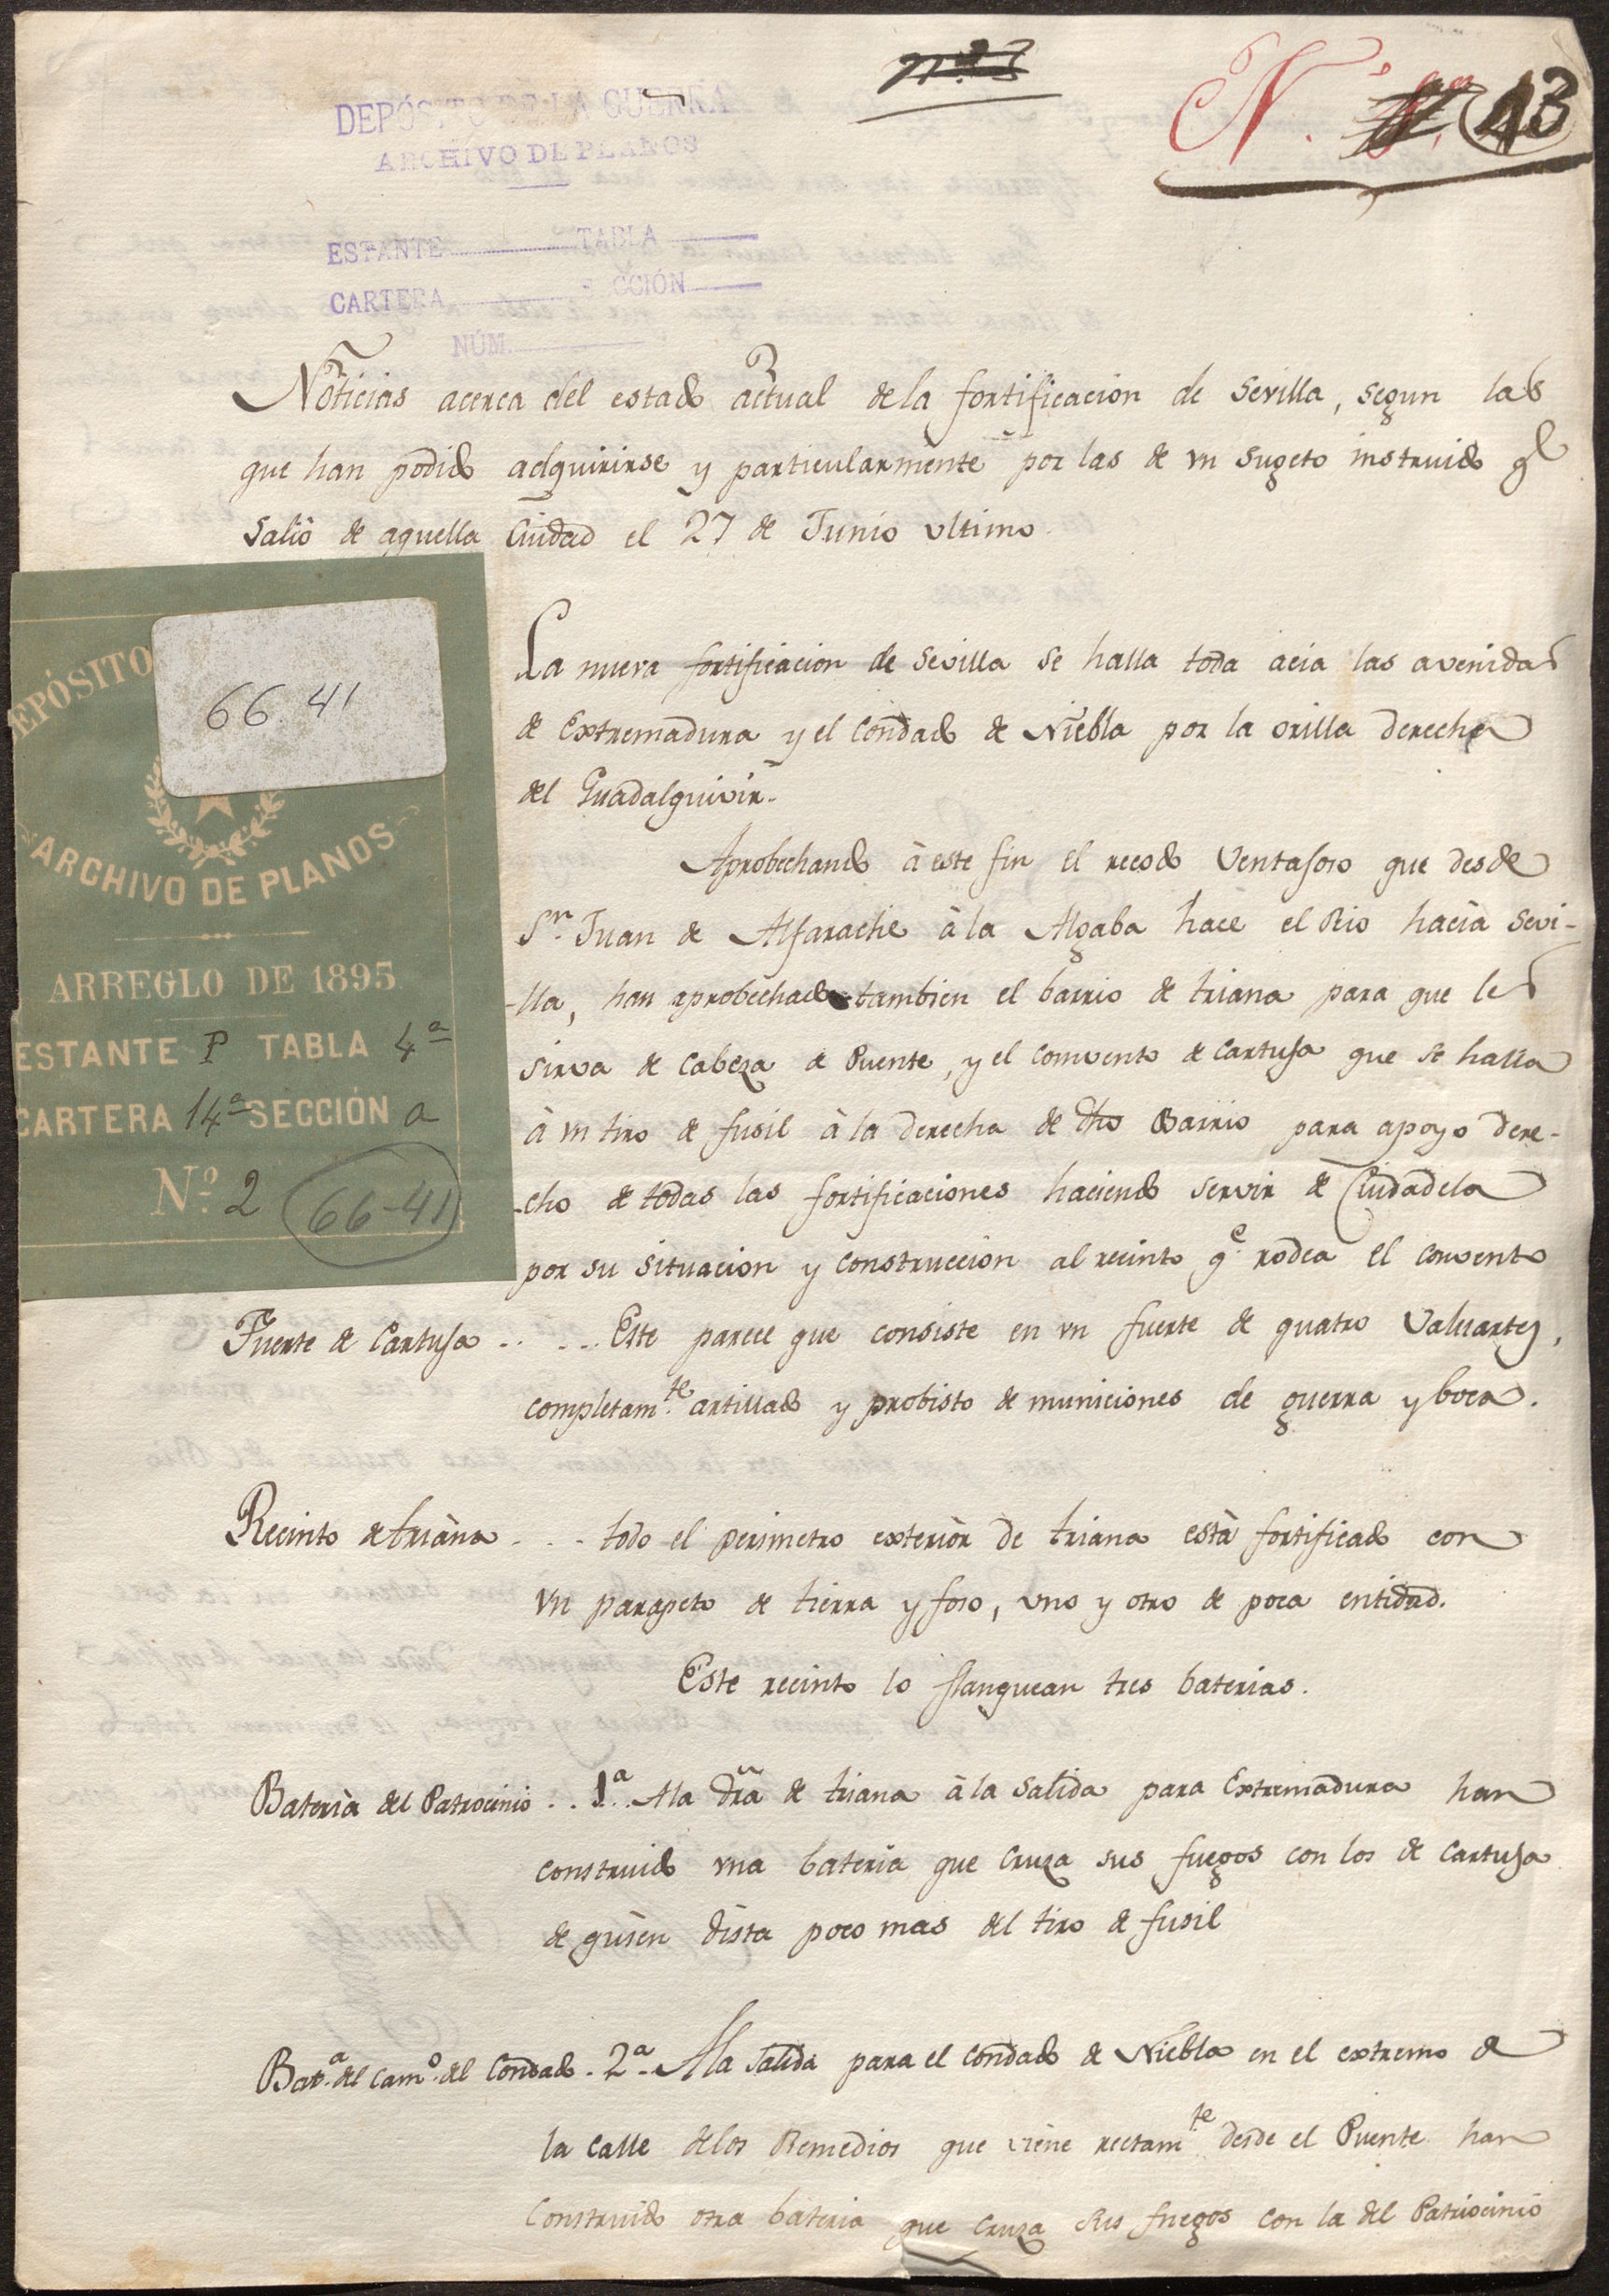 N. 13
DEPÓSITO DE LA GUERRA
ARCHIVO DE PLANOS
ESTANTE TABLA
CARTERA SECCIÓN
NÚM.
Noticias acerca del estado actual de la fortificacion de Sevilla, segun las
que han podido adquirirse y particularmente por las de vn sugeto instruido qe
salió de aquella Ciudad el 27 de Junio vltimo.
La nueva fortificacion de Sevilla se halla toda acia las avenidas
de Extremadura y el Condado de Niebla por la orilla derecha
del Guadalquivir.
Aprobechando à este fin el recodo ventajoso que desde
Sn. Juan de Alfarache à la Algaba hace el Rio hacia Sevi-
-lla, han aprobechado tambien el barrio de triana para que les
sirva de Cabeza de Puente, y el convento de Cartuja que se halla
à vn tiro de fusil à la derecha de dho Barrio para apoyo dere-
-cho de todas las fortificaciones haciendo servir de Ciudadela
por su situacion y construccion al recinto qe. rodea el convento
Fuerte de Cartuja - - . - . - Este parece que consiste en vn fuerte de quatro Valuartes,
completamte. artillado y probisto de municiones de guerra y boca.
Recinto de triana - . - . - todo el perimetro exterior de triana està fortificado con
vn parapeto de tierra y foso, vno y otro de poca entidad.
Este recinto lo flanquean tres baterias.
Bateria del Patrocinio . . 1ª . . A la dra de triana à la salida para Extremadura han
construido vna bateria que cruza sus fuegos con los de Cartuja
de quien dista poco mas del tiro de fusil
Bata. del camo. del Condado - 2ª - A la salida para el Condado de Niebla en el extremo de
la calle de los Remedios que viene rectamte. desde el Puente han
construido otra bateria que cruza sus fuegos con la del Patriocinio
DEPÓSITO
66-41
ARCHIVO DE PLANOS
ARREGLO DE 1895
ESTANTE P TABLA 4ª
CARTERA 14ª SECCIÓN a
Nº. 2 66-41